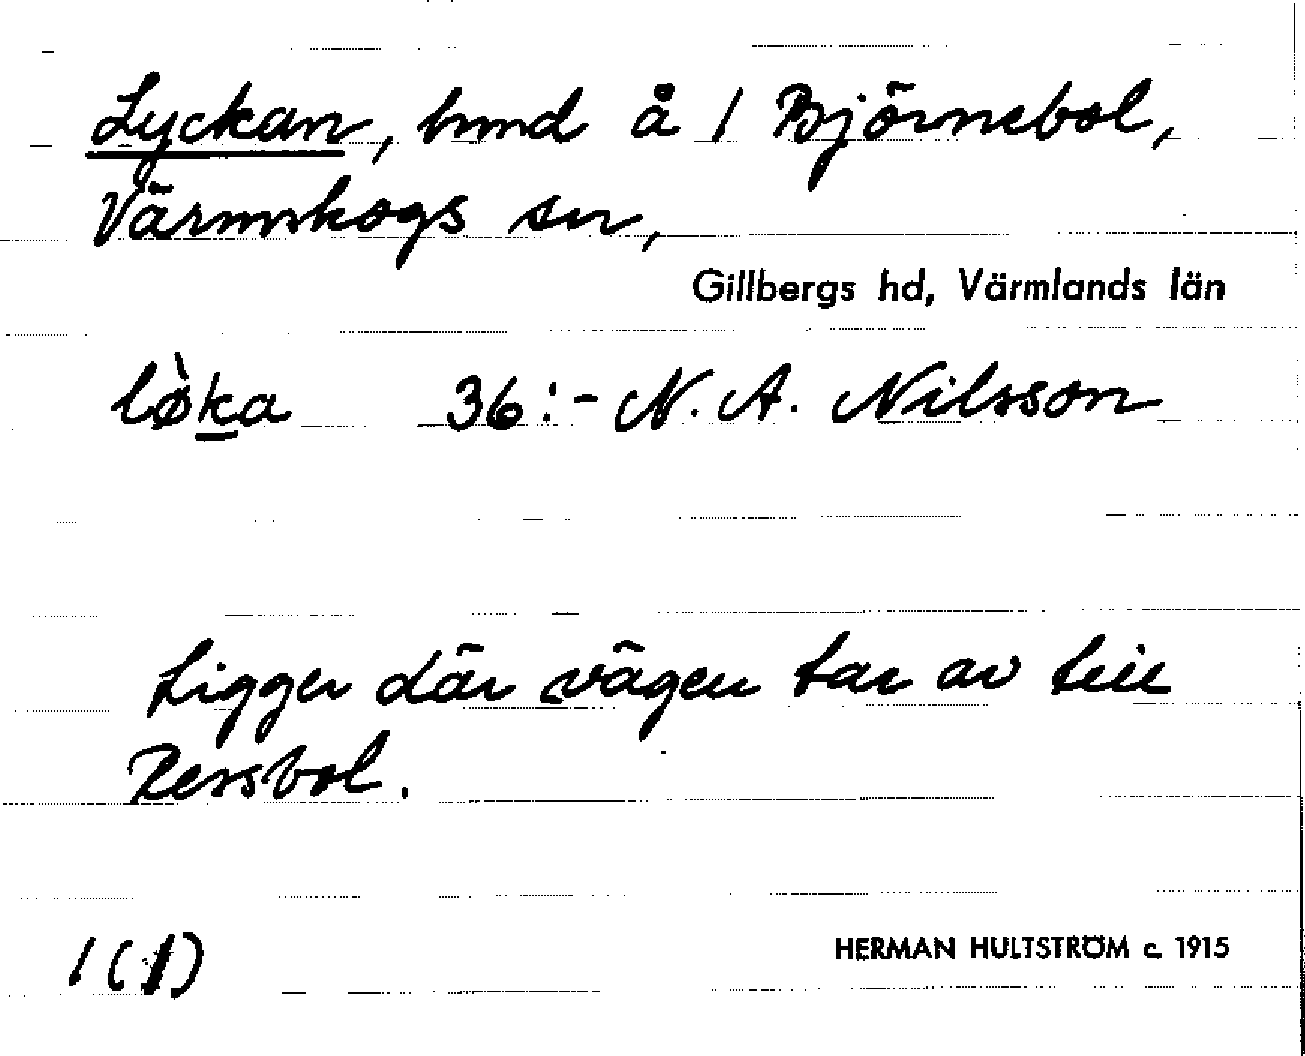 Lyckan, hmd å 1 Björnebol,
Värmskogs sn,
Gillbergs hd, Värmlands län
lø̀ka 36:- N. A. Nilsson
Ligger där vägen tar av till
Ressbol.
1 (1)
HERMAN HULTSTRÖM c. 1915